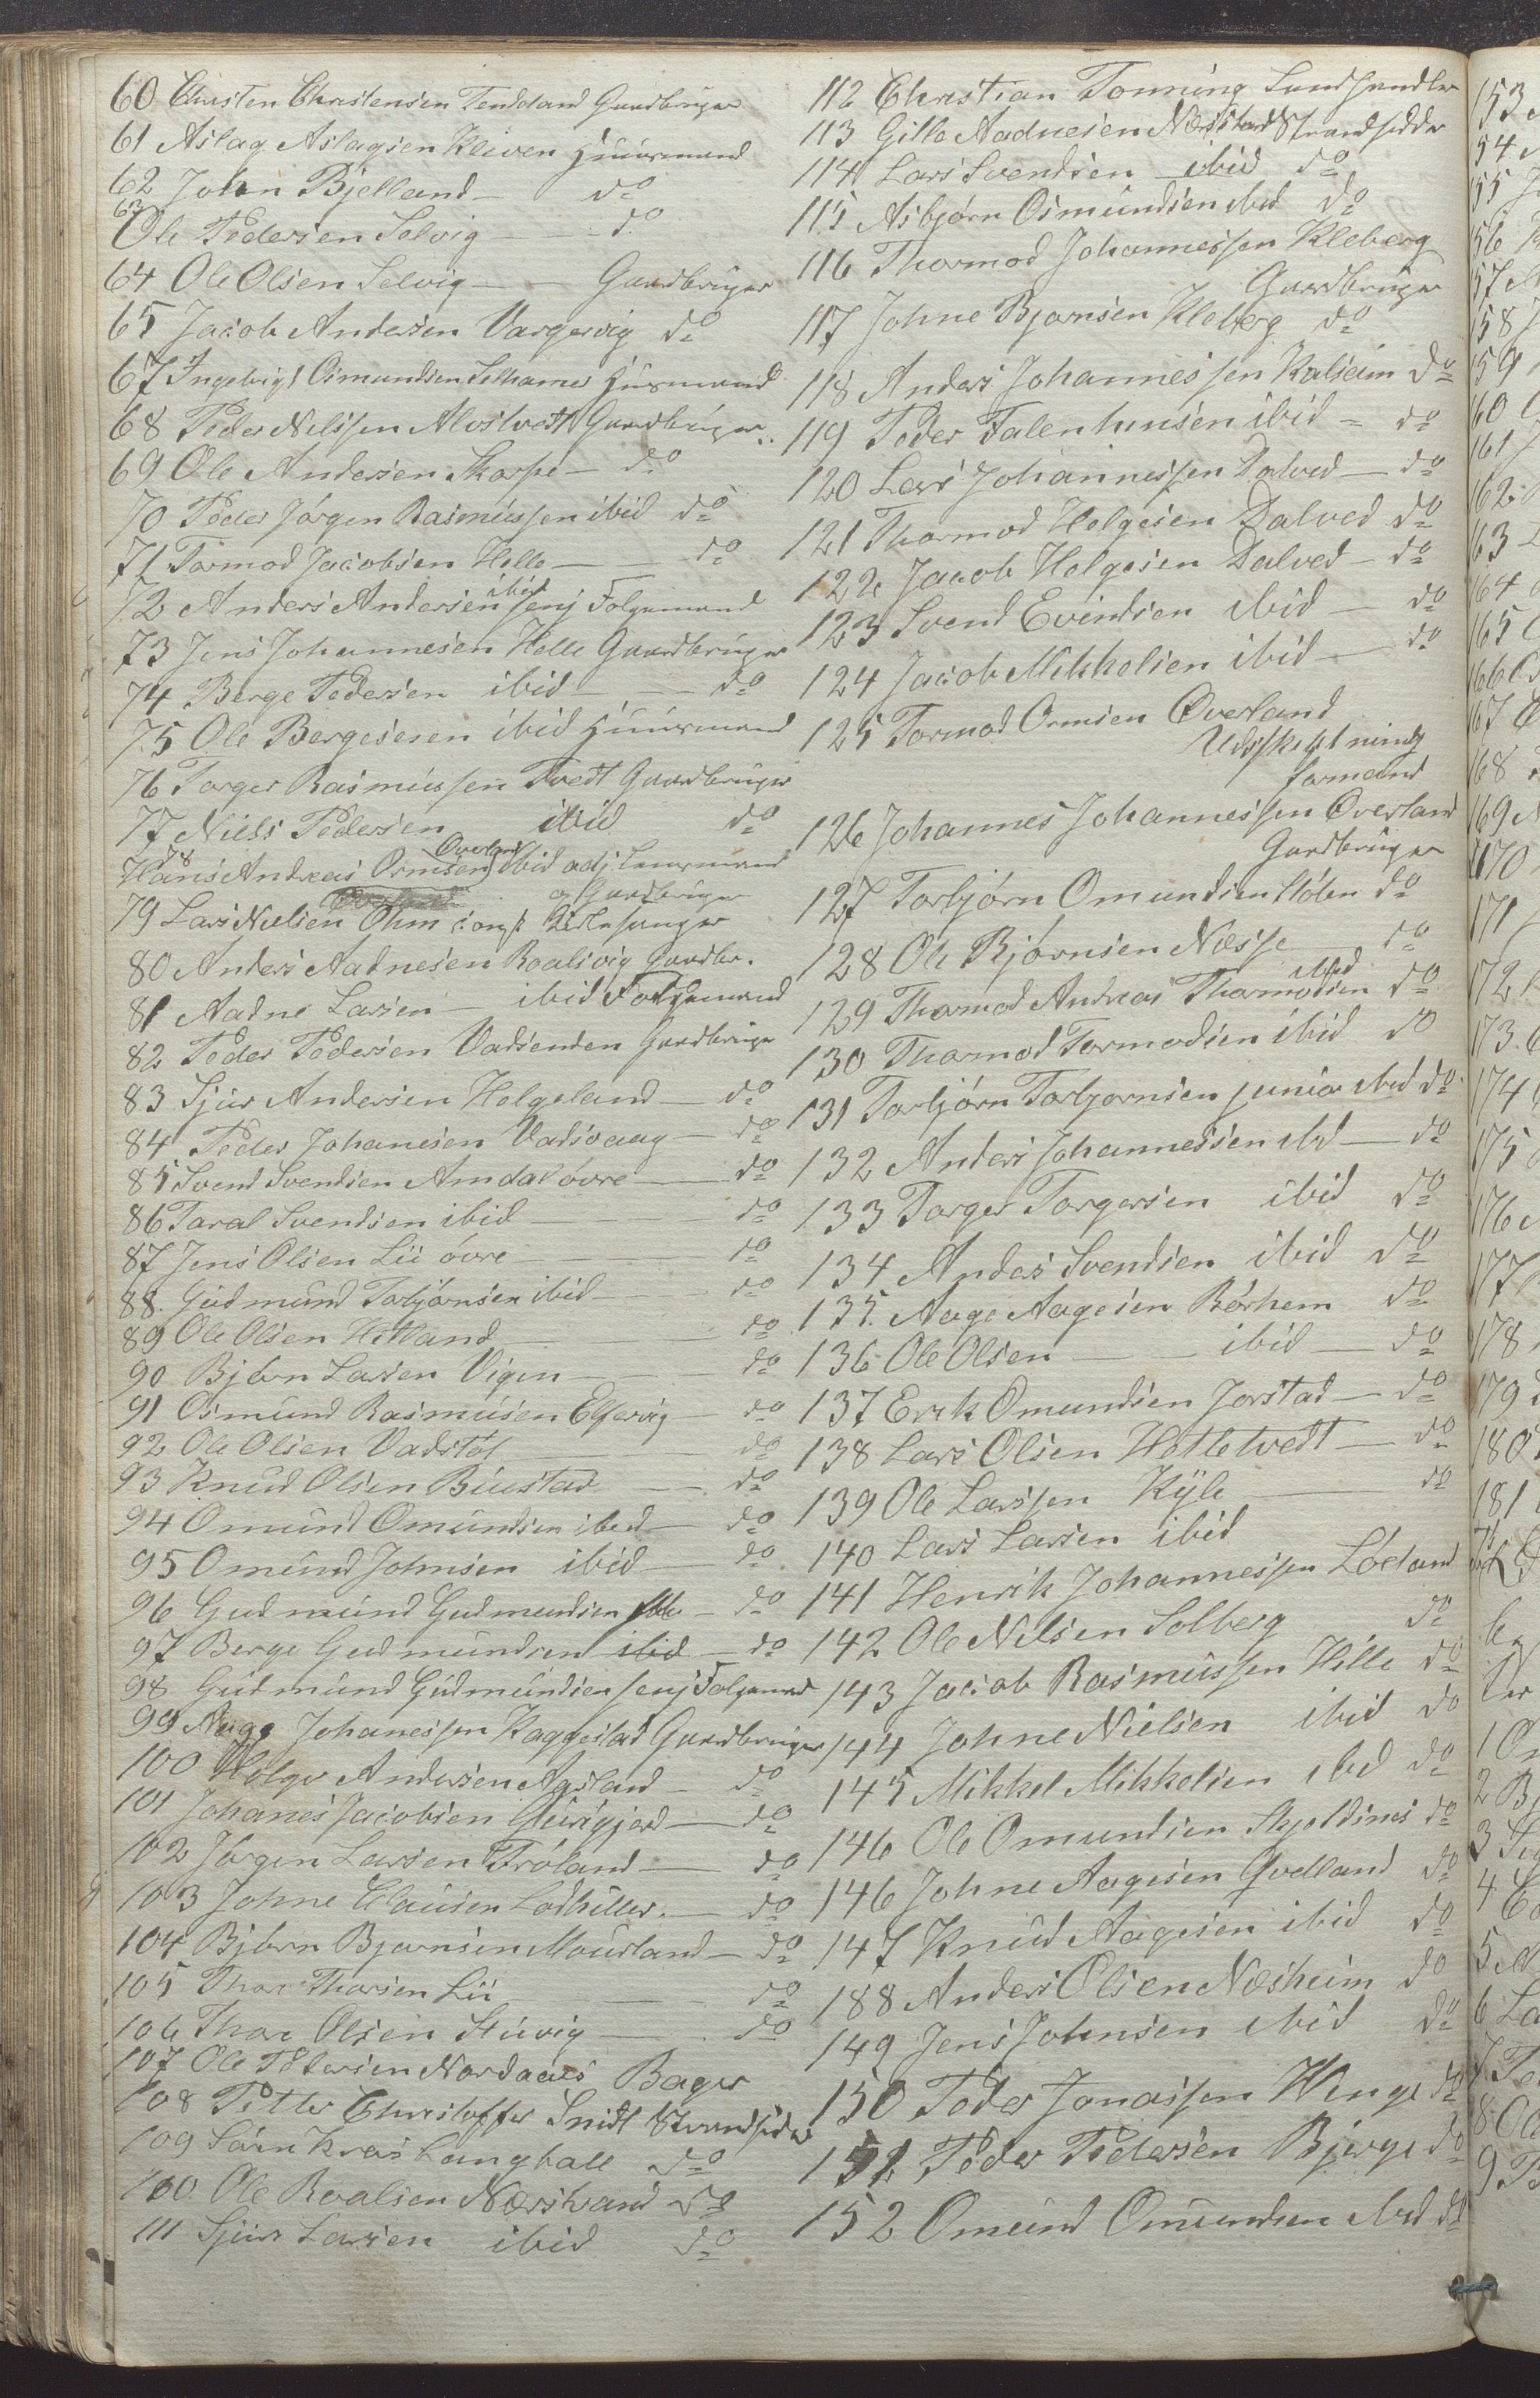 60 Christen Christensen Tendeland Gaardbruger
61 Aslag Aslagsen Kleven Huusmand
62 John Bjelland — do
63 Ole Pedersen Selvig — do
64 Ole Olsen Selvig — — Gaardbruger
65 Jacob Andersen Vargervig do
67 Ingebrigt Osmundsen Selhamer Husmand
68 Peder Nilssen Alvstvedt Gaardbruger
69 Ole Andersen Skarpe — do
70 Peder Jørgen Rasmussen ibid do
71 Tormod Jacobsen Helle — do
72 Anders Andersen ibid senj Folgemand
73 Jens Johannesen Helle Gaardbruger
74 Berge Pedersen ibid — — do
75 Ole Bergesesen ibid Huusmand
76 Torger Rasmussen Tvedt Gaardbruger
77 Niels Pedersen ibid do
78 Hans Andreas Ormsen Øverland ibid adj. Lensmand
og Gaardbruger
79 Lars Nielsen Ohm const Kirkesanger
80 Anders Aadnesen Roalsvig Gaardbr.
81 Aadne Larsen — ibid Folgemand
82 Peder Pedersen Vadsenden Gaardbruger
83 Sjur Andersen Helgeland — do
84 Peder Johanesen Vadsvaag — do
85 Svend Svendsen Amdal øvre — do
86 Taral Svendsen ibid — do
87 Jens Olsen Lii øvre — do
88. Gudmund Torbjørnsen ibid — do
89 Ole Olsen Hetland — do
90 Bjørn Larsen Vigen — do
91 Osmund Rasmusen Elfervig — do
92 Ole Olsen Vadstøl — do
93 Knud Olsen Biustad — do
94 Omund Omundsen ibid — do
95 Omund Johnsen ibid — do
96 Gudmund Gudmundsen — do
97 Berge Gudmundsen ibid — do
98 Gudmund Gudmundsen senj Folgemand
99 Aage Johanessen Kaggestad Gaardbruger
100 Holger Andersen Agsland — do
101 Johanes Jacobsen — do
102 Jørgen Larsen Frøland — do
103 Johne Clausen Lodhiller. — do
104 Bjørn Bjørnsen Mousland — do
105 Thor Thorsen Lii — do
106 Thor Olsen Stuvig — do
107 Ole Petersen Nordaaes Bager
108 Petter Christoffer Smidt Strandsider
109 Søren Kras Langball do
110 Ole Roalsen Nærstrand do
111 Sjurs Larsen ibid do
112 Christian Tonning Landhandler
113 Gitle Aadnesen Nærstrand Strandsidder
114 Lars Svendsen — ibid do
115 Asbjørn Osmundsen ibid do
116 Thormod Johannessen Kleberg
Gaardbruger
117 Johne Bjørnsen Kleberg do
118 Anders Johannessen Kalseim do
119 Peder Falenhensen ibid — do
120 Lars Johannessen Dalved — do
121 Thormod Helgesen Dalved do
122 Jacob Helgesen Dalved — do
123 Svend Evindsen ibid — do
124 Jacob Mikkelsen ibid — do
125 Tormod Ormsen Øverland
Udskiftnings
formand
126 Johannes Johannessen Øverland
Gardbruger
127 Torbjørn Omundsen Støbn do
128 Ole Bjørnsen Næsse do
129 Thormod Andreas Thormodsen ibid do
130 Thormod Tormodsen ibid do
131 Torbjørn Torbjørnsen junior ibid do
132 Anders Johannessen ibid — do
133 Torger Torgersen ibid do
134 Anders Svendsen ibid do
135. Aage Aagesen Børhem do
136 Ole Olsen — ibid — do
137 Erik Omundsen Jorstad — do
138 Lars Olsen Hetletvedt — do
139 Ole Larssen Kyle — do
140 Lars Larsen ibid
141 Henrik Johannessen Løeland
142 Ole Nilsen Solberg do
143 Jacob Rasmussen Hille do
144 Johne Nielsen ibid do
145 Mikkel Mikkelsen ibid do
146 Ole Omundsen Skjoldsnes do
146 Johne Aagesen Qvelland do
147 Knud Aagesen ibid do
188 Anders Olsen Næsheim do
149 Jens Johnsen ibid do
150 Peder Jonassen Wenge do
151 Peder Pedersen Bjerge do
152 Omund Omundsen ibid do